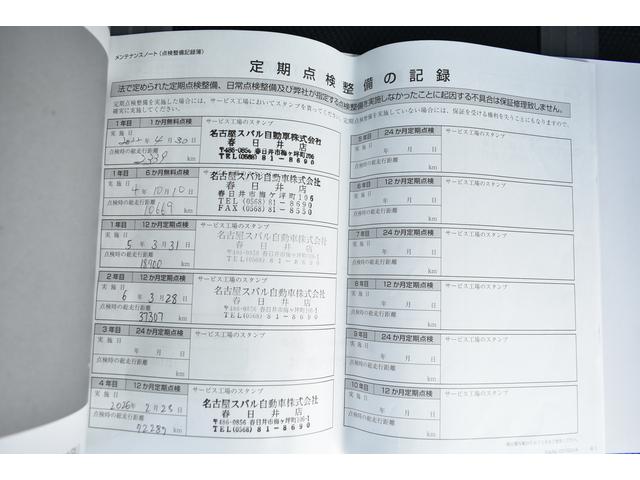 メンテナンスノート（点検整備記録簿）
定期点検整備の記録
法で定められた定期点検整備、日常点検整備及び弊社が指定する点検整備を実施しなかったことに起因する不具合は保証修理致しません。
定期点検整備を実施した場合には、サービス工場においてスタンプを貰ってください。定期点検整備を実施していない場合には、保証を受ける権利を失うことにもなりますので、
確実に実施してください。
1年目 1か月無料点検 サービス工場のスタンプ
実施日 2022年4月30日
点検時の総走行距離 2339 km
名古屋スバル自動車株式会社
春日井店
〒486-0856 春日井市梅ヶ坪町106
TEL(0568)81-8690
1年目 6か月無料点検 サービス工場のスタンプ
実施日 4年10月10日
点検時の総走行距離 10669 km
名古屋スバル自動車株式会社
春日井店
春日井市梅ケ坪町106
TEL(0568)81-8690
FAX(0568)81-8550
1年目 12か月定期点検 サービス工場のスタンプ
実施日 5年3月31日
点検時の総走行距離 18900 km
名古屋スバル自動車株式会社
春日井店
〒486-0856 春日井市梅ケ坪町106-1
TEL(0568)81-8690
2年目 12か月定期点検 サービス工場のスタンプ
実施日 6年3月28日
点検時の総走行距離 37307 km
名古屋スバル自動車株式会社
春日井店
〒486-0856 春日井市梅ケ坪町106-1
TEL(0568)81-8690
3年目 24か月定期点検 サービス工場のスタンプ
実施日 年 月 日
点検時の総走行距離 km
4年目 12か月定期点検 サービス工場のスタンプ
実施日 2026年2月23日
点検時の総走行距離 72289 km
名古屋スバル自動車株式会社
春日井店
〒486-0856 春日井市梅ケ坪町106-1
TEL(0568)81-8690
5年目 24か月定期点検 サービス工場のスタンプ
実施日 年 月 日
点検時の総走行距離 km
6年目 12か月定期点検 サービス工場のスタンプ
実施日 年 月 日
点検時の総走行距離 km
7年目 24か月定期点検 サービス工場のスタンプ
実施日 年 月 日
点検時の総走行距離 km
8年目 12か月定期点検 サービス工場のスタンプ
実施日 年 月 日
点検時の総走行距離 km
9年目 24か月定期点検 サービス工場のスタンプ
実施日 年 月 日
点検時の総走行距離 km
10年目 12か月定期点検 サービス工場のスタンプ
実施日 年 月 日
点検時の総走行距離 km